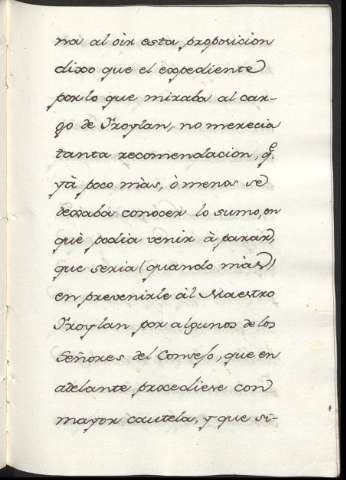 na al oir esta proposicion
dixo que el expediente
por lo que miraba al car-
go de Froylan, no merecia
tanta recomendacion, q.^e
yà poco màs, ò menos se
dexaba conocer lo sumo, en
què podia venir à parar,
que seria (quando màs)
en prevenirle àl Maestro
Froylan por algunos de los
Señores del Consejo, que en
adelante procediese con
mayor cautela, y que si-